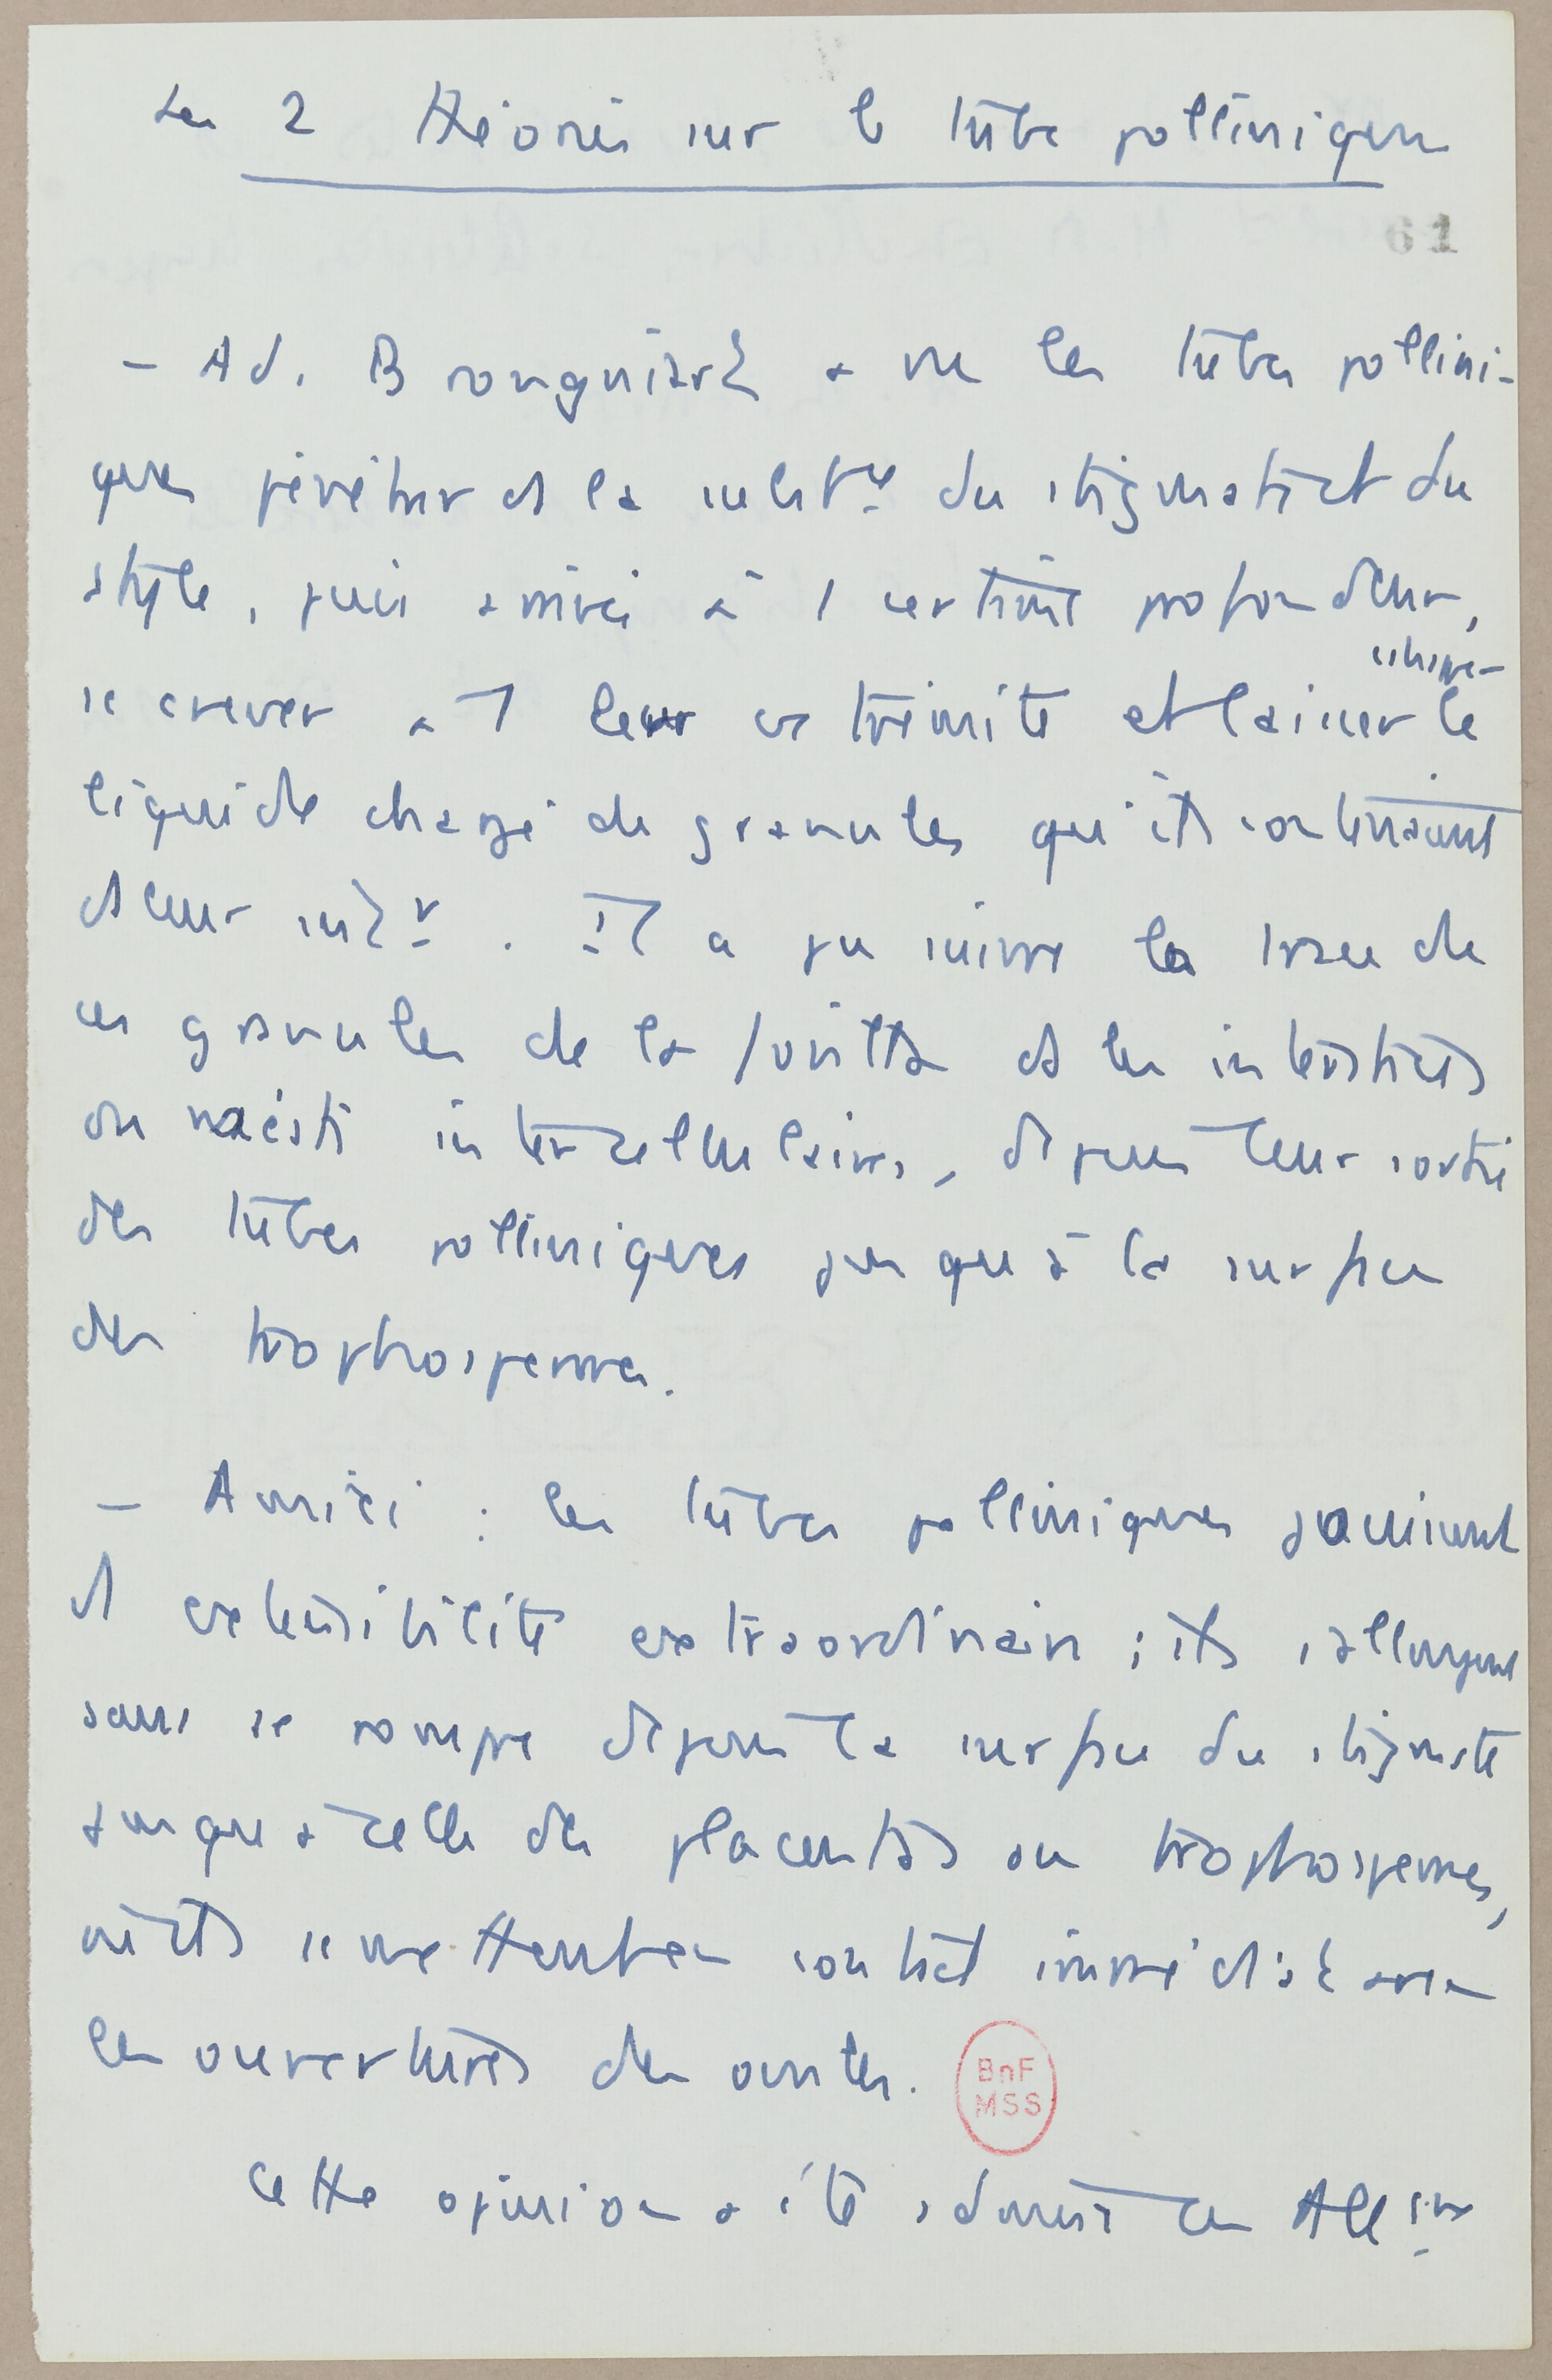 Les 2 théories sur le tube pollinique
61
- Ad. Brongniart a vu les tubes pollini-
ques pénétrer ds la subst ce du stigmate et du
style, puis arrivés à 1 certaine profondeur,
se crever à l leur extrémité et laisser échapper le
liquide chargé de granules qu'ils contenaient
ds leur intr. Il a pu suivre la trace de
ces granules de la fovilla ds les interstices
ou méats intercellulaires, depuis leur sortie
des tubes polliniques jusqu'à la surface
des trophospermes.
- Amici : les tubes polliniques jouissent
d'1 extensibilité extraordinaire ; ils s'allongent
sans se rompre depuis la surface du stigmate
jusqu'à celle des placentas ou trophospermes,
où ils se mettent en contact immédiat avec
les ouvertures des ovules.
BnF
MSS
Cette opinion a été admise en All gne